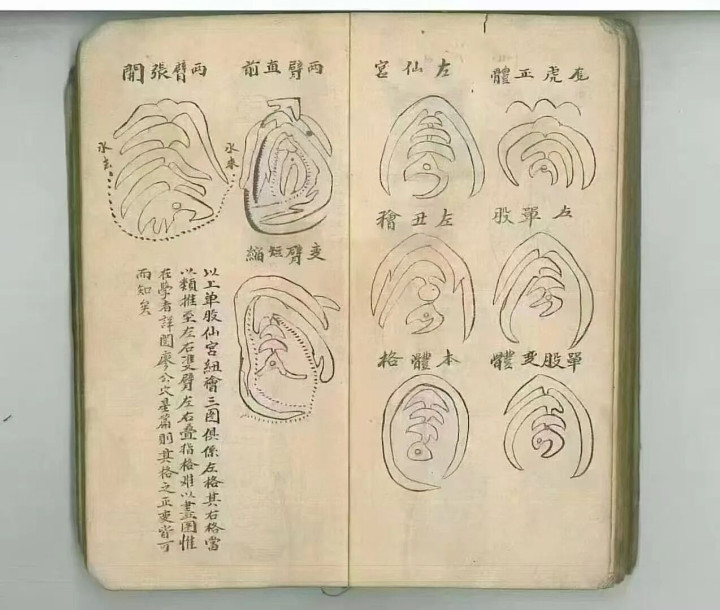 龙虎正體
左單股
單股变體
左仙宮
左丑禬
本體格
两臂直前
水來
变臂短縮
两臂張開
水去
以上单股仙宮紐禬三图俱係左格其右格當
以類推至左右雙臂左右叠指格难以盡图惟
在學者詳閱廖公穴星篇則其格之正变皆可
而知矣